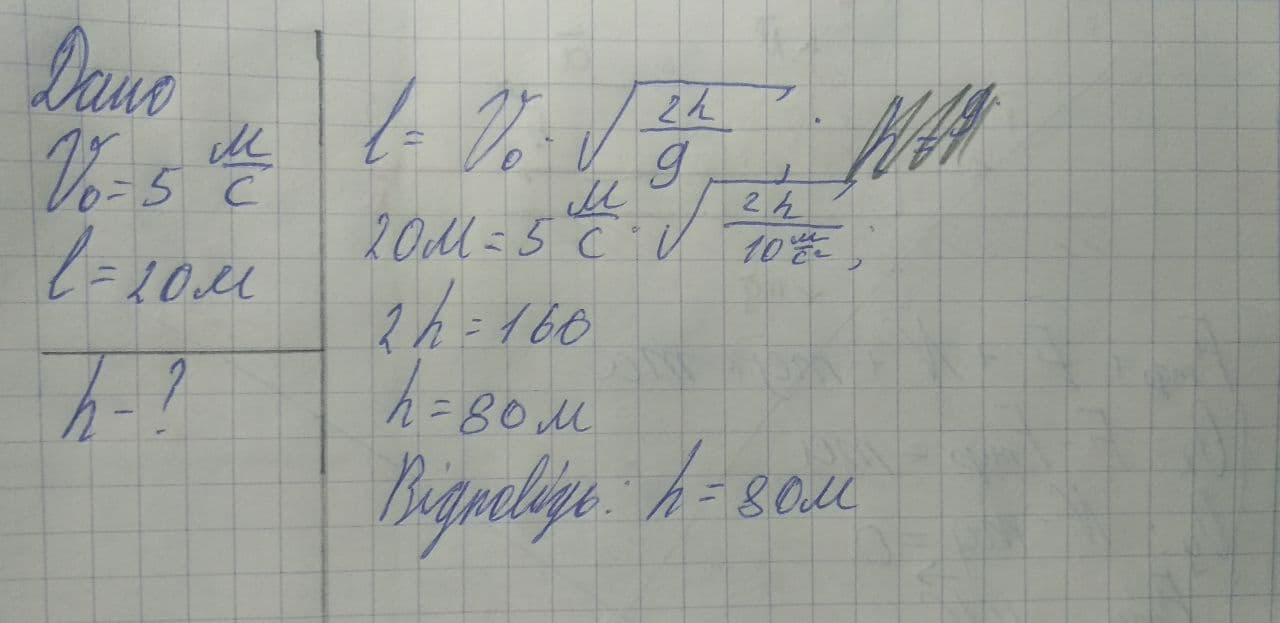 Дано
V₀ = 5 м/с
l = 20м
h - ?
l = V₀ · √(2h/g) ;
20м = 5 м/с · √(2h/10 м/с²) ;
2h = 160
h = 80м
Відповідь: h = 80м